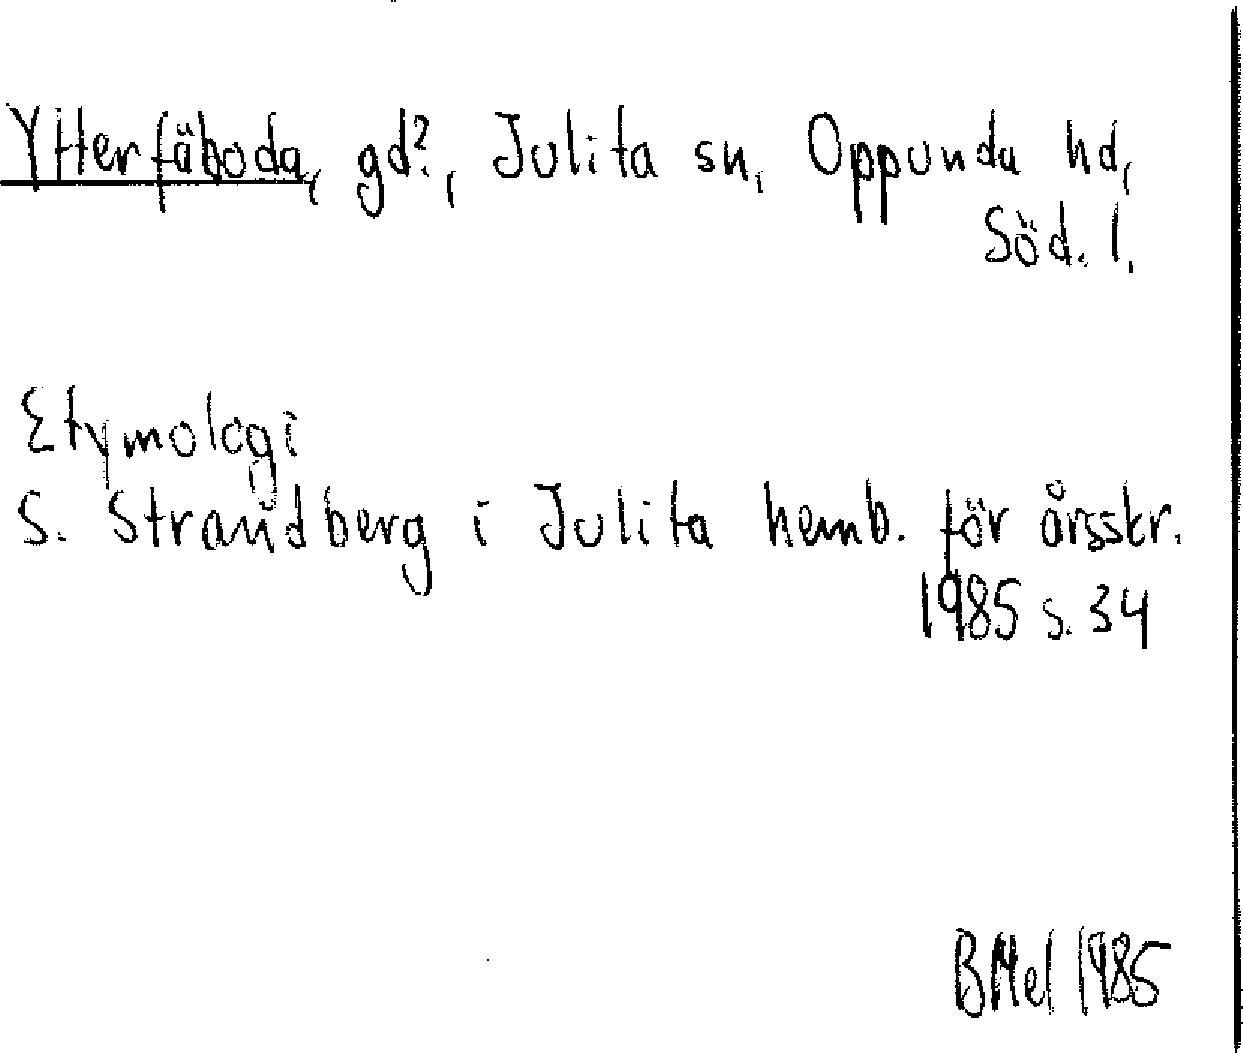 Ytterfäboda, gd?, Julita sn, Oppunda hd,
Söd. l.
Etymologi
S. Strandberg i Julita hemb. för årsskr.
1985 s. 34
BMel 1985